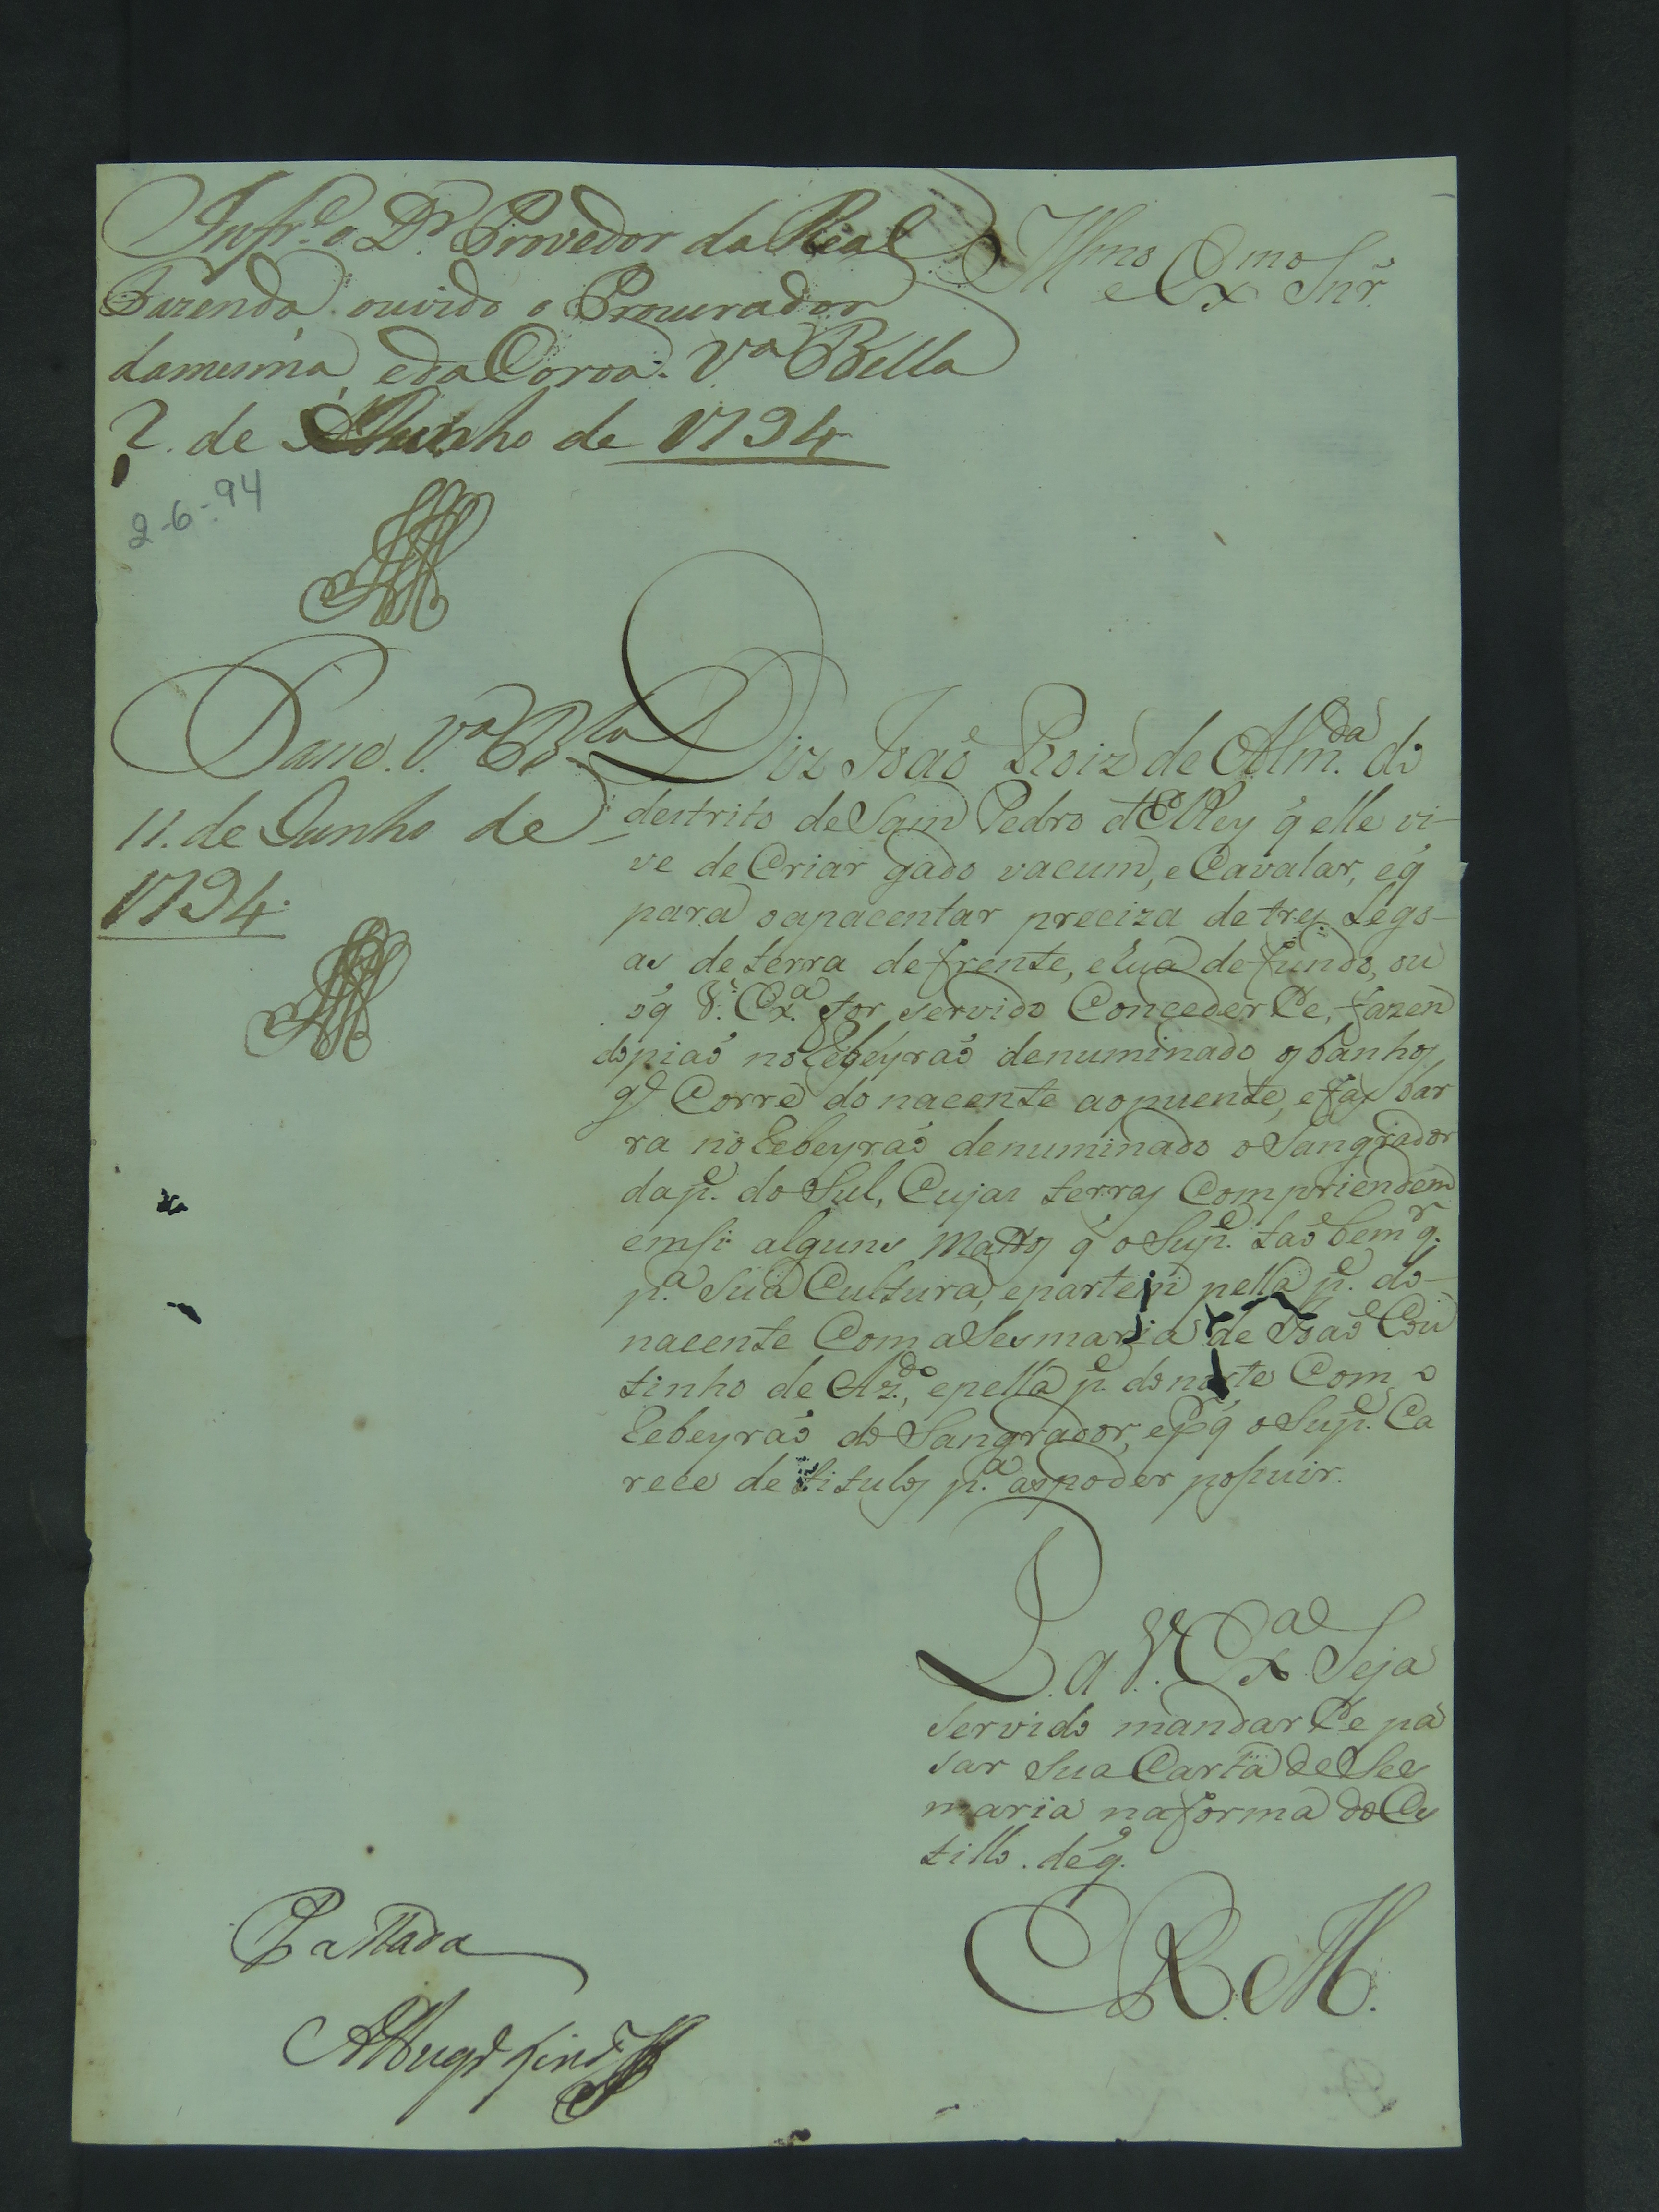 Infr.e o D.r Provedor da Real
Fazenda ouvido o Procurador
damesma, eda Coroa. V.a Bella
2. de Junho de 1794
2-6-94
Illmo e Exmo Snr.
Pace. V.a B.la
11. de Junho de
1794.
Diz Joaõ Roiz de Alm.da do
destrito de Sam Pedro d'ElRey q̃ elle vi-
ve de Criar gado vacum, e Cavalar, eq̃
para oapacentar preciza de tres Lego-
as de terra defrente, e hua defundo, ou
oq̃ V. Ex.a for servido Conceder lhe, fazen
do piaõ no Rebeyraõ denuminado os banhos
q.e Corre do nacente aopuente, efas bar
ra no Rebeyraõ denuminado o Sangrador
da p.e do Sul, Cujas terras Compriendem
emsi alguns Mattos q̃ o Sup.e taõ bem q.r
p.a Sua Cultura, epartem pella p.e do
nacente Com aSesmaria de Joaõ Cou
tinho de Az.do, epella p.e do norte Com o
Rebeyraõ do Sangrador, e p.r q̃ o Sup.e Ca
rece de titulos p.a aspoder posuir.
P. a V. Ex.a Seja
Servido mandar lhe pa
sar Sua Carta de Ses
maria naforma do Es
tillo. deq̃.
E. R. M.
Passada